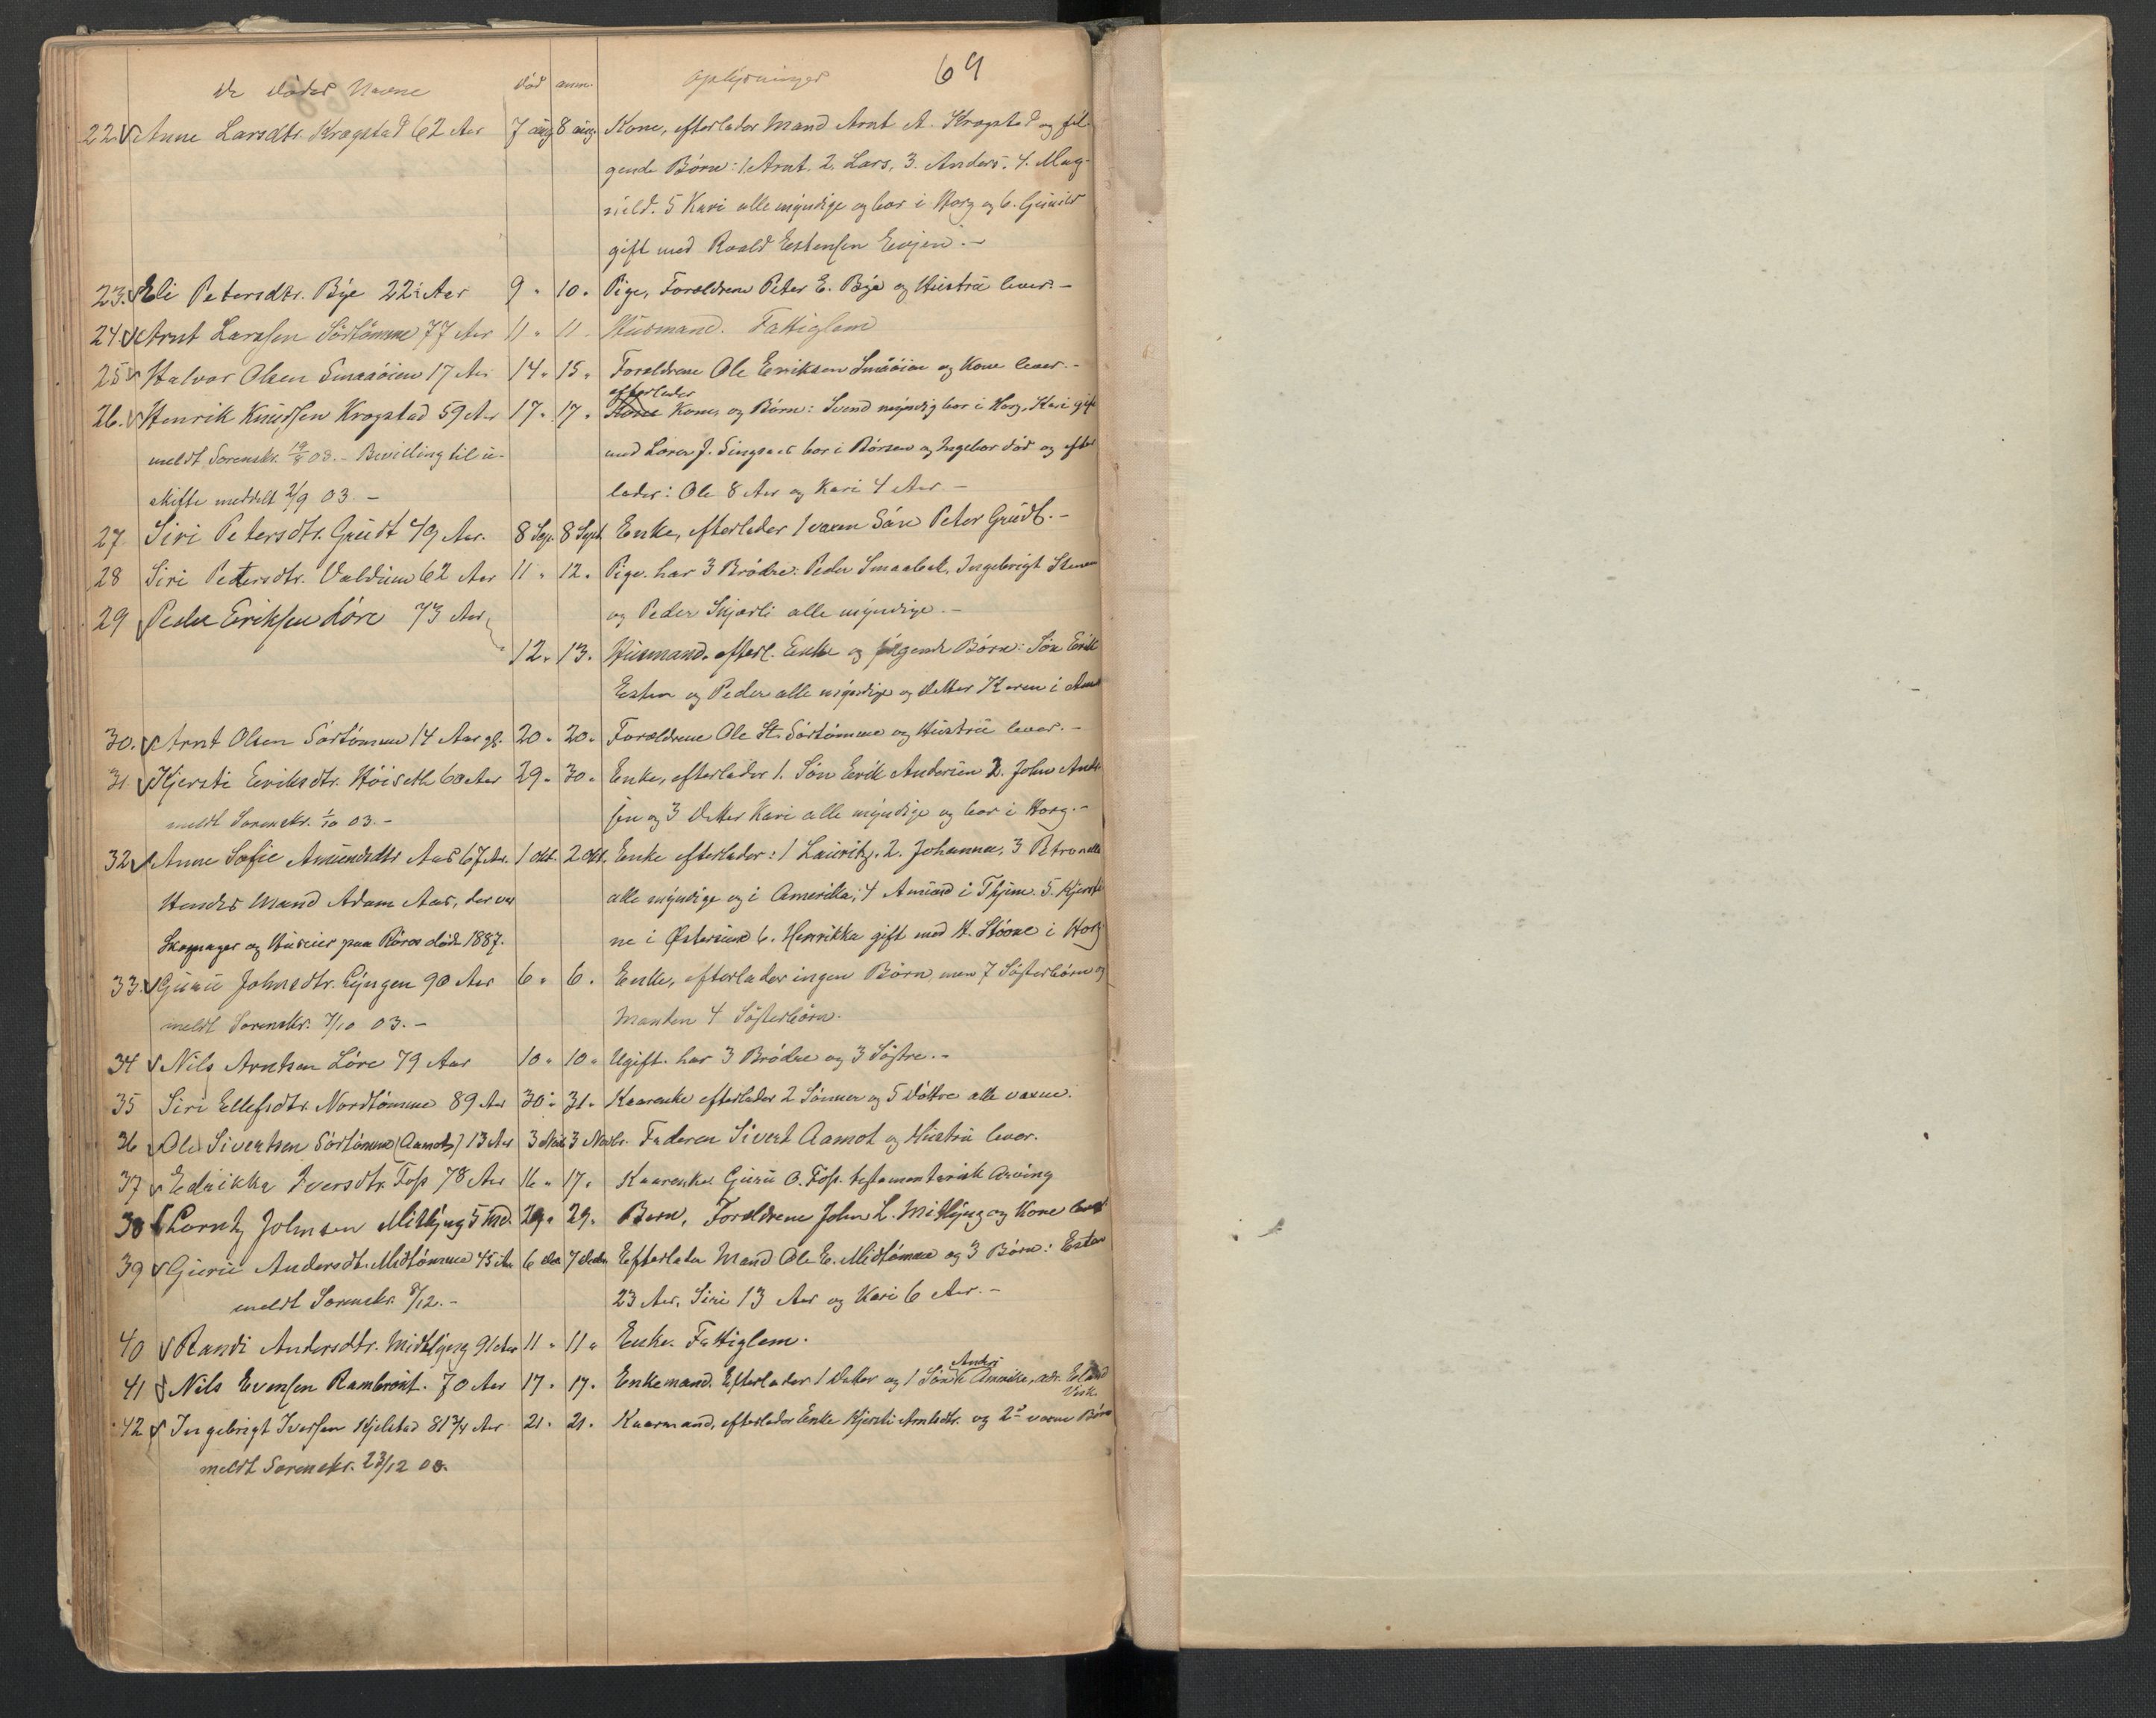 69
De dødes Navne død anm. Oplysninger
22. Anne Larsdtr. Krogstad 62 Aar 7 aug 8 aug. Kone, efterlader Mand Arnt A. Krogstad og føl-
gende Børn: 1. Arnt. 2. Lars, 3. Anders. 4. Mag-
nild. 5 Kari alle myndige og bor i Horg og 6. Gunild
gift med Roald Estensen Evjen. -
23. Eli Petersdtr. Bye 22 Aar 9 " 10 " Pige, Forældrene Peter E. Bye og Hustru lever. -
24 Arnt Larssen Sørtømme 77 Aar 11 " 11 Husmand. Fattiglem
25 Halvor Olsen Smaaøien 17 Aar 14 " 15 " Forældrene Ole Eriksen Småøien og Kone lever. -
efterlader
26. Henrik Knudsen Krogstad 59 Aar 17 " 17 " Kone og Børn: Svend myndig bor i Horg, Kari gift
meldt Sorenskr. 19/8 03. - Bevilling til u- med Loren J. Singsaas bor i Børsen og Ingebor død og efter
skifte meddelt 2/9 03. - lader: Ole 8 Aar og Kari 4 Aar -
27 Siri Petersdtr. Gridt 49 Aar. 8 Sep. 8 Sept Enke, efterlader 1 voxen Søn Peter Gridt. -
28 Siri Pedersdtr. Valdum 62 Aar 11 " 12 " Pige. har 3 Brødre: Peder Smaabak, Ingebrigt
29 Peder Eriksen Løre 73 Aar og Peder Skjærli alle myndige. -
12 " 13 " Husmand. efterl. Enke og følgende Børn: Søn Erik
Esten og Peder alle myndige og Datter Karen i
30. Arnt Olsen Sørtømme 14 Aar gl. 20 " 20 " Forældrene Ole St. Sørtømme og Hustru lever. -
31. Kjersti Eriksdtr. Høiseth 60 Aar 29 " 30 " Enke, efterlader 1. Søn Erik Andersen 2. John Ander-
meldt Sorenskr. 1/10 03. - sen og 3 Datter Kari alle myndige og bor i Horg. -
32 Anne Sofie Amundsdtr Aas 67 Aar. 1 okt. 2 okt. Enke efterlader: 1 Lauritz, 2. Johanna, 3 Petronelle
Hendes Mand Adam Aas, der var alle myndige og i Amerika, 4 Amund i Thjem. 5. Kjersti
Skomager og Huseier paa Røros døde 1887. ne i Østersund 6. Henrikka gift med H. Støone i Horg
33. Guru Johnsdtr. Lyngen 90 Aar 6 " 6 . Enke, efterlader ingen Børn, men 7 Søsterbørn og
meldt Sorenskr. 7/10 03. - Manden 4 Søsterbørn.
34 Nils Arntsen Løre 79 Aar 10 " 10 " Ugift. har 3 Brødre og 3 Søstre. -
35 Siri Ellefsdtr. Nordtømme 89 Aar 30 " 31 " Kaarenke efterlader 2 Sønner og 5 Døttre alle voxne.
36 Ole Sivertsen Sørtømme (Aamot) 13 Aar 3 Novbr. Faderen Sivert Aamot og Hustru lever.
37 Edrikka Iversdtr. Foss 78 Aar 16 " 17 . Kaarenke. Guru O. Foss. testamentarisk Arving
38 Lorntz Johnsen Midtlyng 5 Md. 29 " 29 . Barn, Forældrene John L. Midtlyng og Kone lever
39 Guru Andersdtr. Midtømme 45 Aar 6 dec 7 decbr. Efterlader Mand Ole E. Midtømme og 3 Børn: Esten
meldt Sorenskr. 8/12. - 23 Aar, Siri 13 Aar og Kari 6 Aar. -
40 Randi Andersdtr. Midtlyng 91 Aar 11 " 11 " Enke. Fattiglem.
41 Nils Evensen Rambraut. 70 Aar 17 " 17 . Enkemand. Efterlader 1 Datter og 1 Søn i Amerika, adr. Eland
Visk.
42 Ingebrigt Iversen Kjelstad 81 3/4 Aar 21 . 21 . Kaarmand, efterlader Enke Kjersti Arntsdtr. og 2 voxne Børn
meldt Sorenskr. 23/12 03.